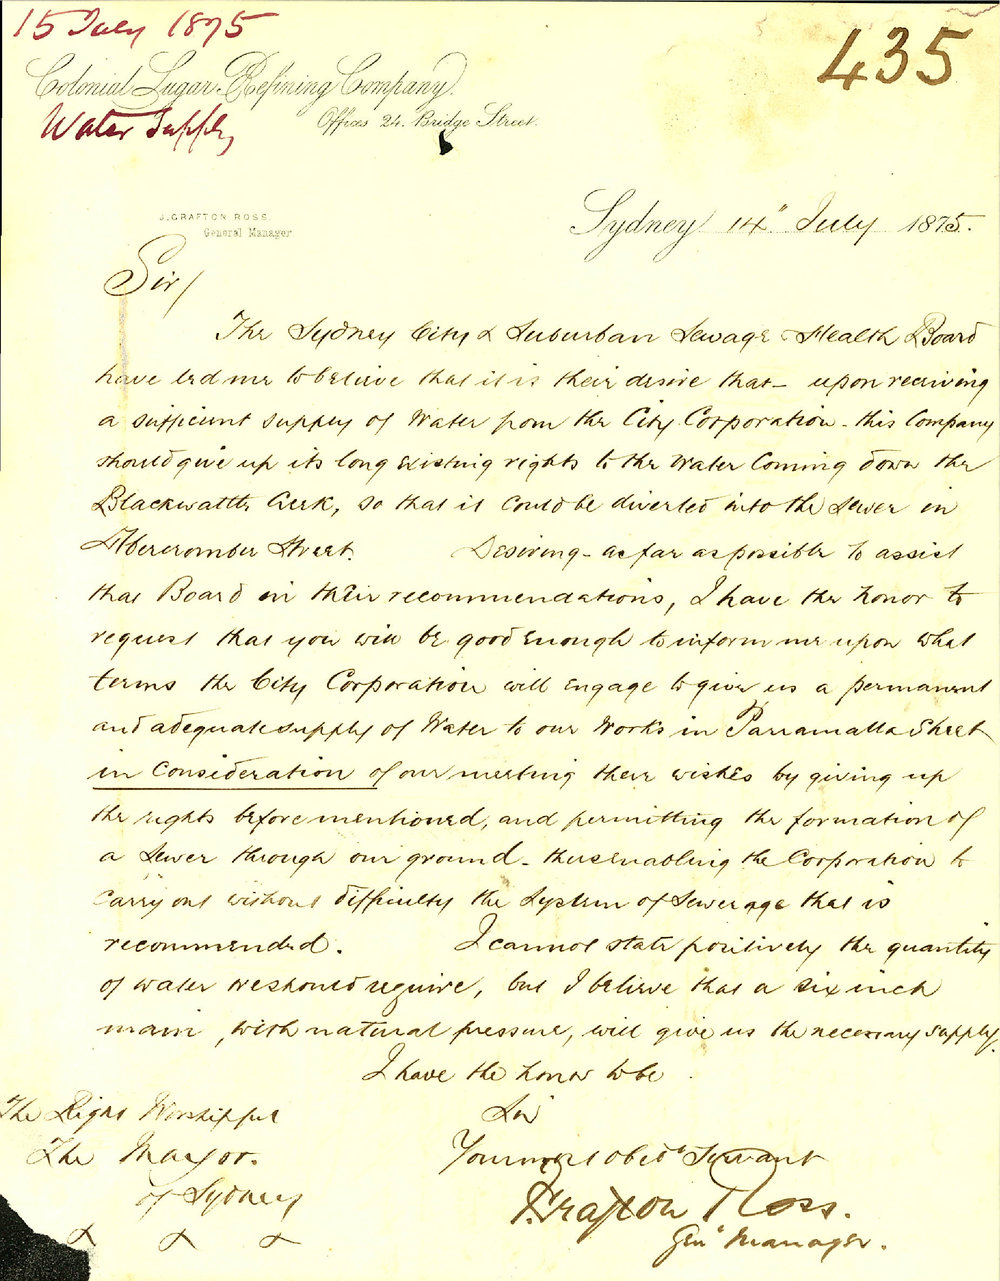 15 July 1875
435
Colonial Sugar Refining Company.
Water Supply
Offices 24. Bridge Street.
J. GRAFTON ROSS.
General Manager
Sydney 14" July 1875.
Sir/
The Sydney City & Suburban Sewage & Health Board
have led me to believe that it is their desire that - upon receiving
a sufficient supply of Water from the City Corporation - this Company
should give up its long existing rights to the Water Coming down the
Blackwattle Creek, so that it could be diverted into the Sewer in
Abercrombie Street. Desiring - as far as possible to assist
that Board in their recommendations, I have the honor to
request that you will be good enough to inform me upon what
terms the City Corporation will engage to give us a permanent
and adequate supply of Water to our Works in Parramatta Street
in consideration of our meeting their wishes by giving up
the rights before mentioned, and permitting the formation of
a Sewer through our ground - thus enabling the Corporation to
carry out without difficulty the System of Sewerage that is
recommended. I cannot state positively the quantity
of water we should require, but I believe that a six inch
main, with natural pressure, will give us the necessary supply.
I have the honor to be
The Right Worshipful
Sir
The Mayor.
Your most obedt Servant
of Sydney
J. Grafton Ross.
Genl Manager.